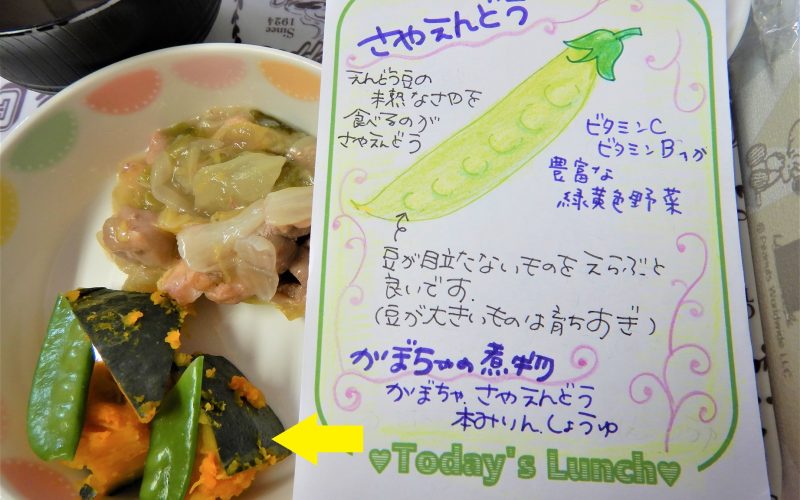 Since
1924
さやえんどう
えんどう豆の
未熟なさやを
食べるのが
さやえんどう
ビタミンC
ビタミンB1が
豊富な
緑黄色野菜
豆が目立たないものをえらぶと
良いです.
(豆が大きいものは育ちすぎ)
かぼちゃの煮物
かぼちゃ.さやえんどう
本みりん.しょうゆ
♥Today's Lunch♥